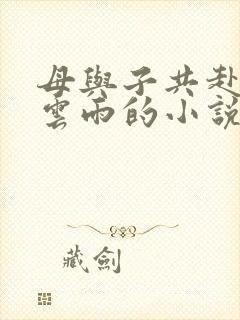 母與子共赴
雲雨的小說
藏劍